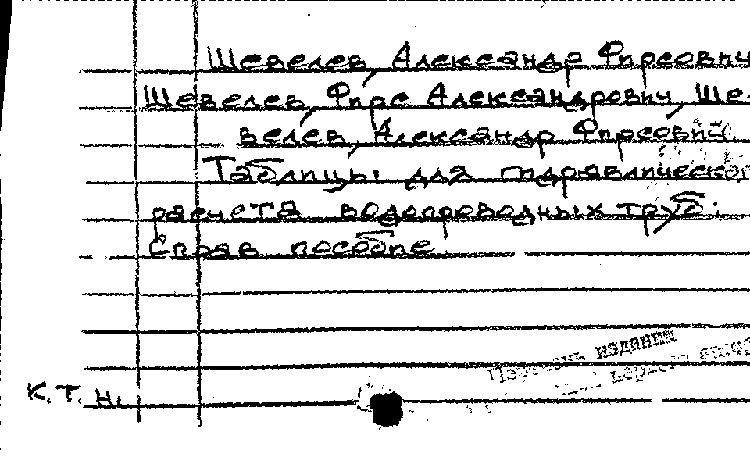 Шевелев, Александр Фирсович
Шевелев, Фирс Александрович, Ше-
велев, Александр Фирсович.
Таблицы для гидравлическо
расчета водопроводных труб:
Справ пособие
издания
К. Т. Н.